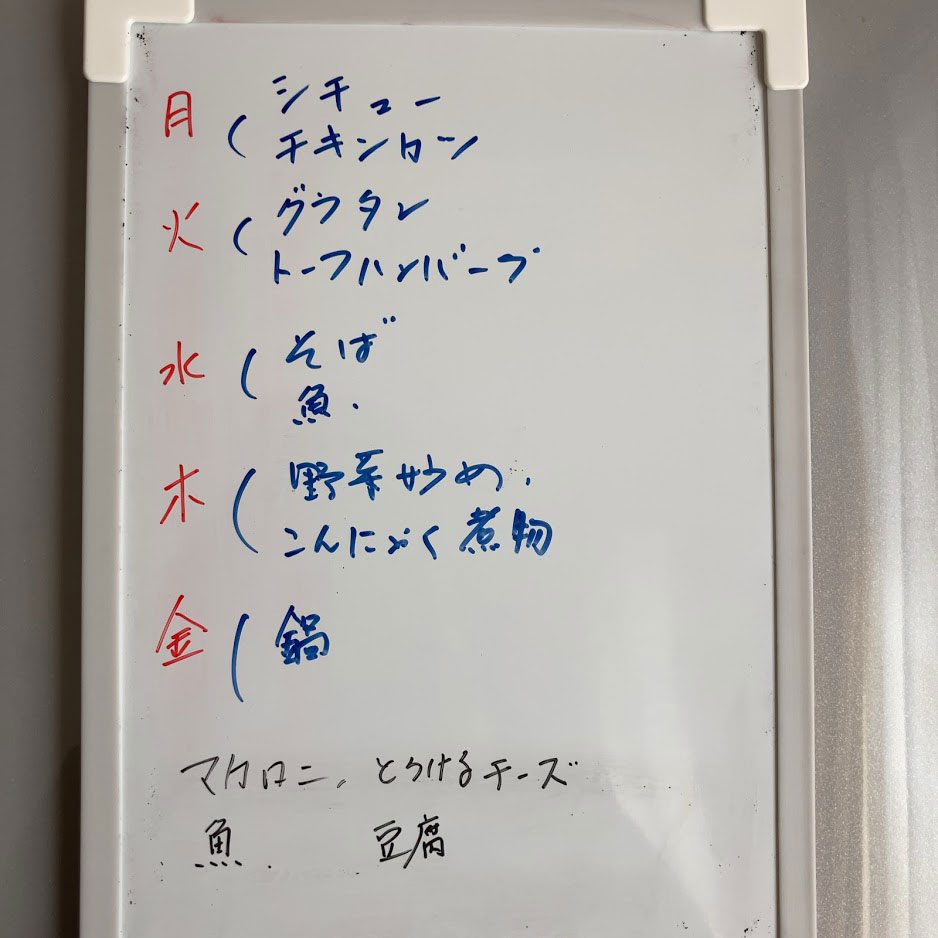 月 ( シチュー
チキンカツ
火 ( グラタン
トーフハンバーグ
水 ( そば
魚.
木 ( 野菜炒め、
こんにゃく煮物
金 ( 鍋
マカロニ、とろけるチーズ
魚. 豆腐